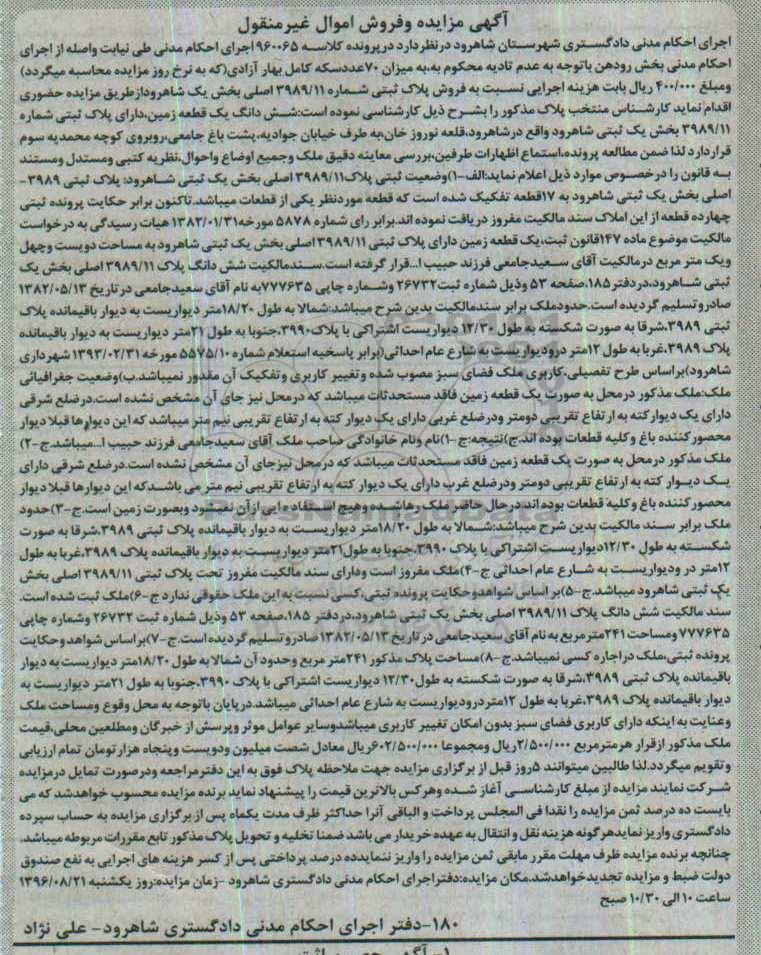 آگهی مزایده وفروش اموال غیرمنقول
اجرای احکام مدنی دادگستری شهرستان شاهرود درنظردارد درپرونده کلاسه ۹۶۰۰۶۵ اجرای احکام مدنی طی نیابت واصله از اجرای
احکام مدنی بخش رودهن باتوجه به عدم تادیه محکوم به،به میزان ۷۰عددسکه کامل بهار آزادی(که به نرخ روز مزایده محاسبه میگردد)
ومبلغ ۴۰۰/۰۰۰ ریال بابت هزینه اجرایی نسبت به فروش پلاک ثبتی شماره ۳۹۸۹/۱۱ اصلی بخش یک شاهرودازطریق مزایده حضوری
اقدام نماید کارشناس منتخب پلاک مذکور را بشرح ذیل کارشناسی نموده است:شش دانگ یک قطعه زمین،دارای پلاک ثبتی شماره
۳۹۸۹/۱۱ بخش یک ثبتی شاهرود واقع درشاهرود،قلعه نوروز خان،به طرف خیابان جوادیه،پشت باغ جامعی،روبروی کوچه محمدیه سوم
قراردارد لذا ضمن مطالعه پرونده،استماع اظهارات طرفین،بررسی معاینه دقیق ملک وجمیع اوضاع واحوال،نظریه کتبی ومستدل ومستند
به قانون را درخصوص موارد ذیل اعلام نماید:الف-۱)وضعیت ثبتی پلاک۳۹۸۹/۱۱ اصلی بخش یک ثبتی شاهرود: پلاک ثبتی ۳۹۸۹-
اصلی بخش یک ثبتی شاهرود به ۱۷قطعه تفکیک شده است که قطعه موردنظر یکی از قطعات میباشد.تاکنون برابر حکایت پرونده ثبتی
چهارده قطعه از این املاک سند مالکیت مفروز دریافت نموده اند.برابر رای شماره ۵۸۷۸ مورخه ۱۳۸۲/۰۱/۳۱ هیات رسیدگی به درخواست
مالکیت موضوع ماده ۱۴۷قانون ثبت،یک قطعه زمین دارای پلاک ثبتی ۳۹۸۹/۱۱ اصلی بخش یک ثبتی شاهرود به مساحت دویست وچهل
ویک متر مربع درمالکیت آقای سعیدجامعی فرزند حبیب ا...قرار گرفته است.سندمالکیت شش دانگ پلاک ۳۹۸۹/۱۱ اصلی بخش یک
ثبتی شاهرود،دردفتر ۱۸۵،صفحه ۵۳ وذیل شماره ثبت۲۶۷۳۲ وشماره چاپی ۷۷۷۶۳۵به نام آقای سعیدجامعی در تاریخ ۱۳۸۲/۰۵/۱۳
صادروتسلیم گردیده است.حدودملک برابر سندمالکیت بدین شرح میباشد:شمالا به طول ۱۸/۲۰متر دیواریست به دیوار باقیمانده پلاک
ثبتی ۳۹۸۹.شرقا به صورت شکسته به طول ۱۲/۳۰ دیواریست اشتراکی با پلاک۳۹۹۰.جنوبا به طول ۲۱متر دیواریست به دیوار باقیمانده
پلاک ۳۹۸۹.غربا به طول ۱۲متر درودیواریست به شارع عام احداثی(برابر پاسخیه استعلام شماره ۵۵۷۵/۱۰ مورخه ۱۳۹۳/۰۲/۳۱ شهرداری
شاهرود)براساس طرح تفصیلی،کاربری ملک فضای سبز مصوب شده وتغییر کاربری وتفکیک آن مقدور نمیباشد.ب)وضعیت جغرافیائی
ملک:ملک مذکور درمحل به صورت یک قطعه زمین فاقد مستحدثات میباشد که درمحل نیز جای آن مشخص نشده است.درضلع شرقی
دارای یک دیوارکته به ارتفاع تقریبی دومتر ودرضلع غربی دارای یک دیوار کته به ارتفاع تقریبی نیم متر میباشد که این دیوارها قبلا دیوار
محصورکننده باغ وکلیه قطعات بوده اند.ج)نتیجه:ج-۱)نام ونام خانوادگی صاحب ملک آقای سعیدجامعی فرزند حبیب ا...میباشد.ج-۲)
ملک مذکور درمحل به صورت یک قطعه زمین فاقد مستحدثات میباشد که درمحل نیزجای آن مشخص نشده است.درضلع شرقی دارای
یک دیوار کته به ارتفاع تقریبی دومتر ودرضلع غرب دارای یک دیوار کته به ارتفاع تقریبی نیم متر می باشدکه این دیوارها قبلا دیوار
محصورکننده باغ وکلیه قطعات بوده‌اند.درحال حاضر ملک رهاشده وهیچ استفاده ایی ازآن نمیشود وبصورت زمین است.ج-۳)حدود
ملک برابر سند مالکیت بدین شرح میباشد:شمالا به طول ۱۸/۲۰متر دیواریست به دیوار باقیمانده پلاک ثبتی ۳۹۸۹.شرقا به صورت
شکسته به طول ۱۲/۳۰دیواریست اشتراکی با پلاک ۳۹۹۰.جنوبا به طول۲۱متر دیواریست به دیوار باقیمانده پلاک ۳۹۸۹.غربا به طول
۱۲متر در ودیواریست به شارع عام احداثی ج-۴)ملک مفروز است ودارای سند مالکیت مفروز تحت پلاک ثبتی ۳۹۸۹/۱۱ اصلی بخش
یک ثبتی شاهرود میباشد.ج-۵)بر اساس شواهدوحکایت پرونده ثبتی،کسی نسبت به این ملک حقوقی ندارد ج-۶)ملک ثبت شده است.
سند مالکیت شش دانگ پلاک ۳۹۸۹/۱۱ اصلی بخش یک ثبتی شاهرود،دردفتر ۱۸۵،صفحه ۵۳ وذیل شماره ثبت ۲۶۷۳۲ وشماره چاپی
۷۷۷۶۳۵ ومساحت ۲۴۱مترمربع به نام آقای سعیدجامعی در تاریخ ۱۳۸۲/۰۵/۱۳ صادروتسلیم گردیده است.ج-۷)براساس شواهدوحکایت
پرونده ثبتی،ملک دراجاره کسی نمیباشد.ج-۸)مساحت پلاک مذکور ۲۴۱متر مربع وحدود آن شمالا به طول ۱۸/۲۰متر دیواریست به دیوار
باقیمانده پلاک ثبتی ۳۹۸۹.شرقا به صورت شکسته به طول۱۲/۳۰ دیواریست اشتراکی با پلاک ۳۹۹۰.جنوبا به طول ۲۱متر دیواریست به
دیوار باقیمانده پلاک ۳۹۸۹.غربا به طول ۱۲متردرودیواریست به شارع عام احداثی میباشد.درپایان باتوجه به محل وقوع ومساحت ملک
وعنایت به اینکه دارای کاربری فضای سبز بدون امکان تغییر کاربری میباشدوسایر عوامل موثر وپرسش از خبرگان ومطلعین محلی،قیمت
ملک مذکور ازقرار هرمترمربع ۲/۵۰۰/۰۰۰ریال ومجموعا ۶۰۲/۵۰۰/۰۰۰ریال معادل شصت میلیون ودویست وپنجاه هزارتومان تمام ارزیابی
وتقویم میگردد.لذا طالبین میتوانند ۵روز قبل از برگزاری مزایده جهت ملاحظه پلاک فوق به این دفترمراجعه ودرصورت تمایل درمزایده
شرکت نمایند مزایده از مبلغ کارشناسی آغاز شده وهرکس بالاترین قیمت را پیشنهاد نماید برنده مزایده محسوب خواهدشد که می
بایست ده درصد ثمن مزایده را نقدا فی المجلس پرداخت و الباقی آنرا حداکثر ظرف مدت یکماه پس از برگزاری مزایده به حساب سپرده
دادگستری واریز نمایدهرگونه هزینه نقل و انتقال به عهده خریدار می باشد ضمنا تخلیه و تحویل پلاک مذکور تابع مقررات مربوطه میباشد.
چنانچه برنده مزایده ظرف مهلت مقرر مابقی ثمن مزایده را واریز ننمایدده درصد پرداختی پس از کسر هزینه های اجرایی به نفع صندوق
دولت ضبط و مزایده تجدیدخواهدشد.مکان مزایده:دفتراجرای احکام مدنی دادگستری شاهرود -زمان مزایده:روز یکشنبه ۱۳۹۶/۰۸/۲۱
ساعت ۱۰ الی ۱۰/۳۰ صبح
۱۸۰-دفتر اجرای احکام مدنی دادگستری شاهرود- علی نژاد